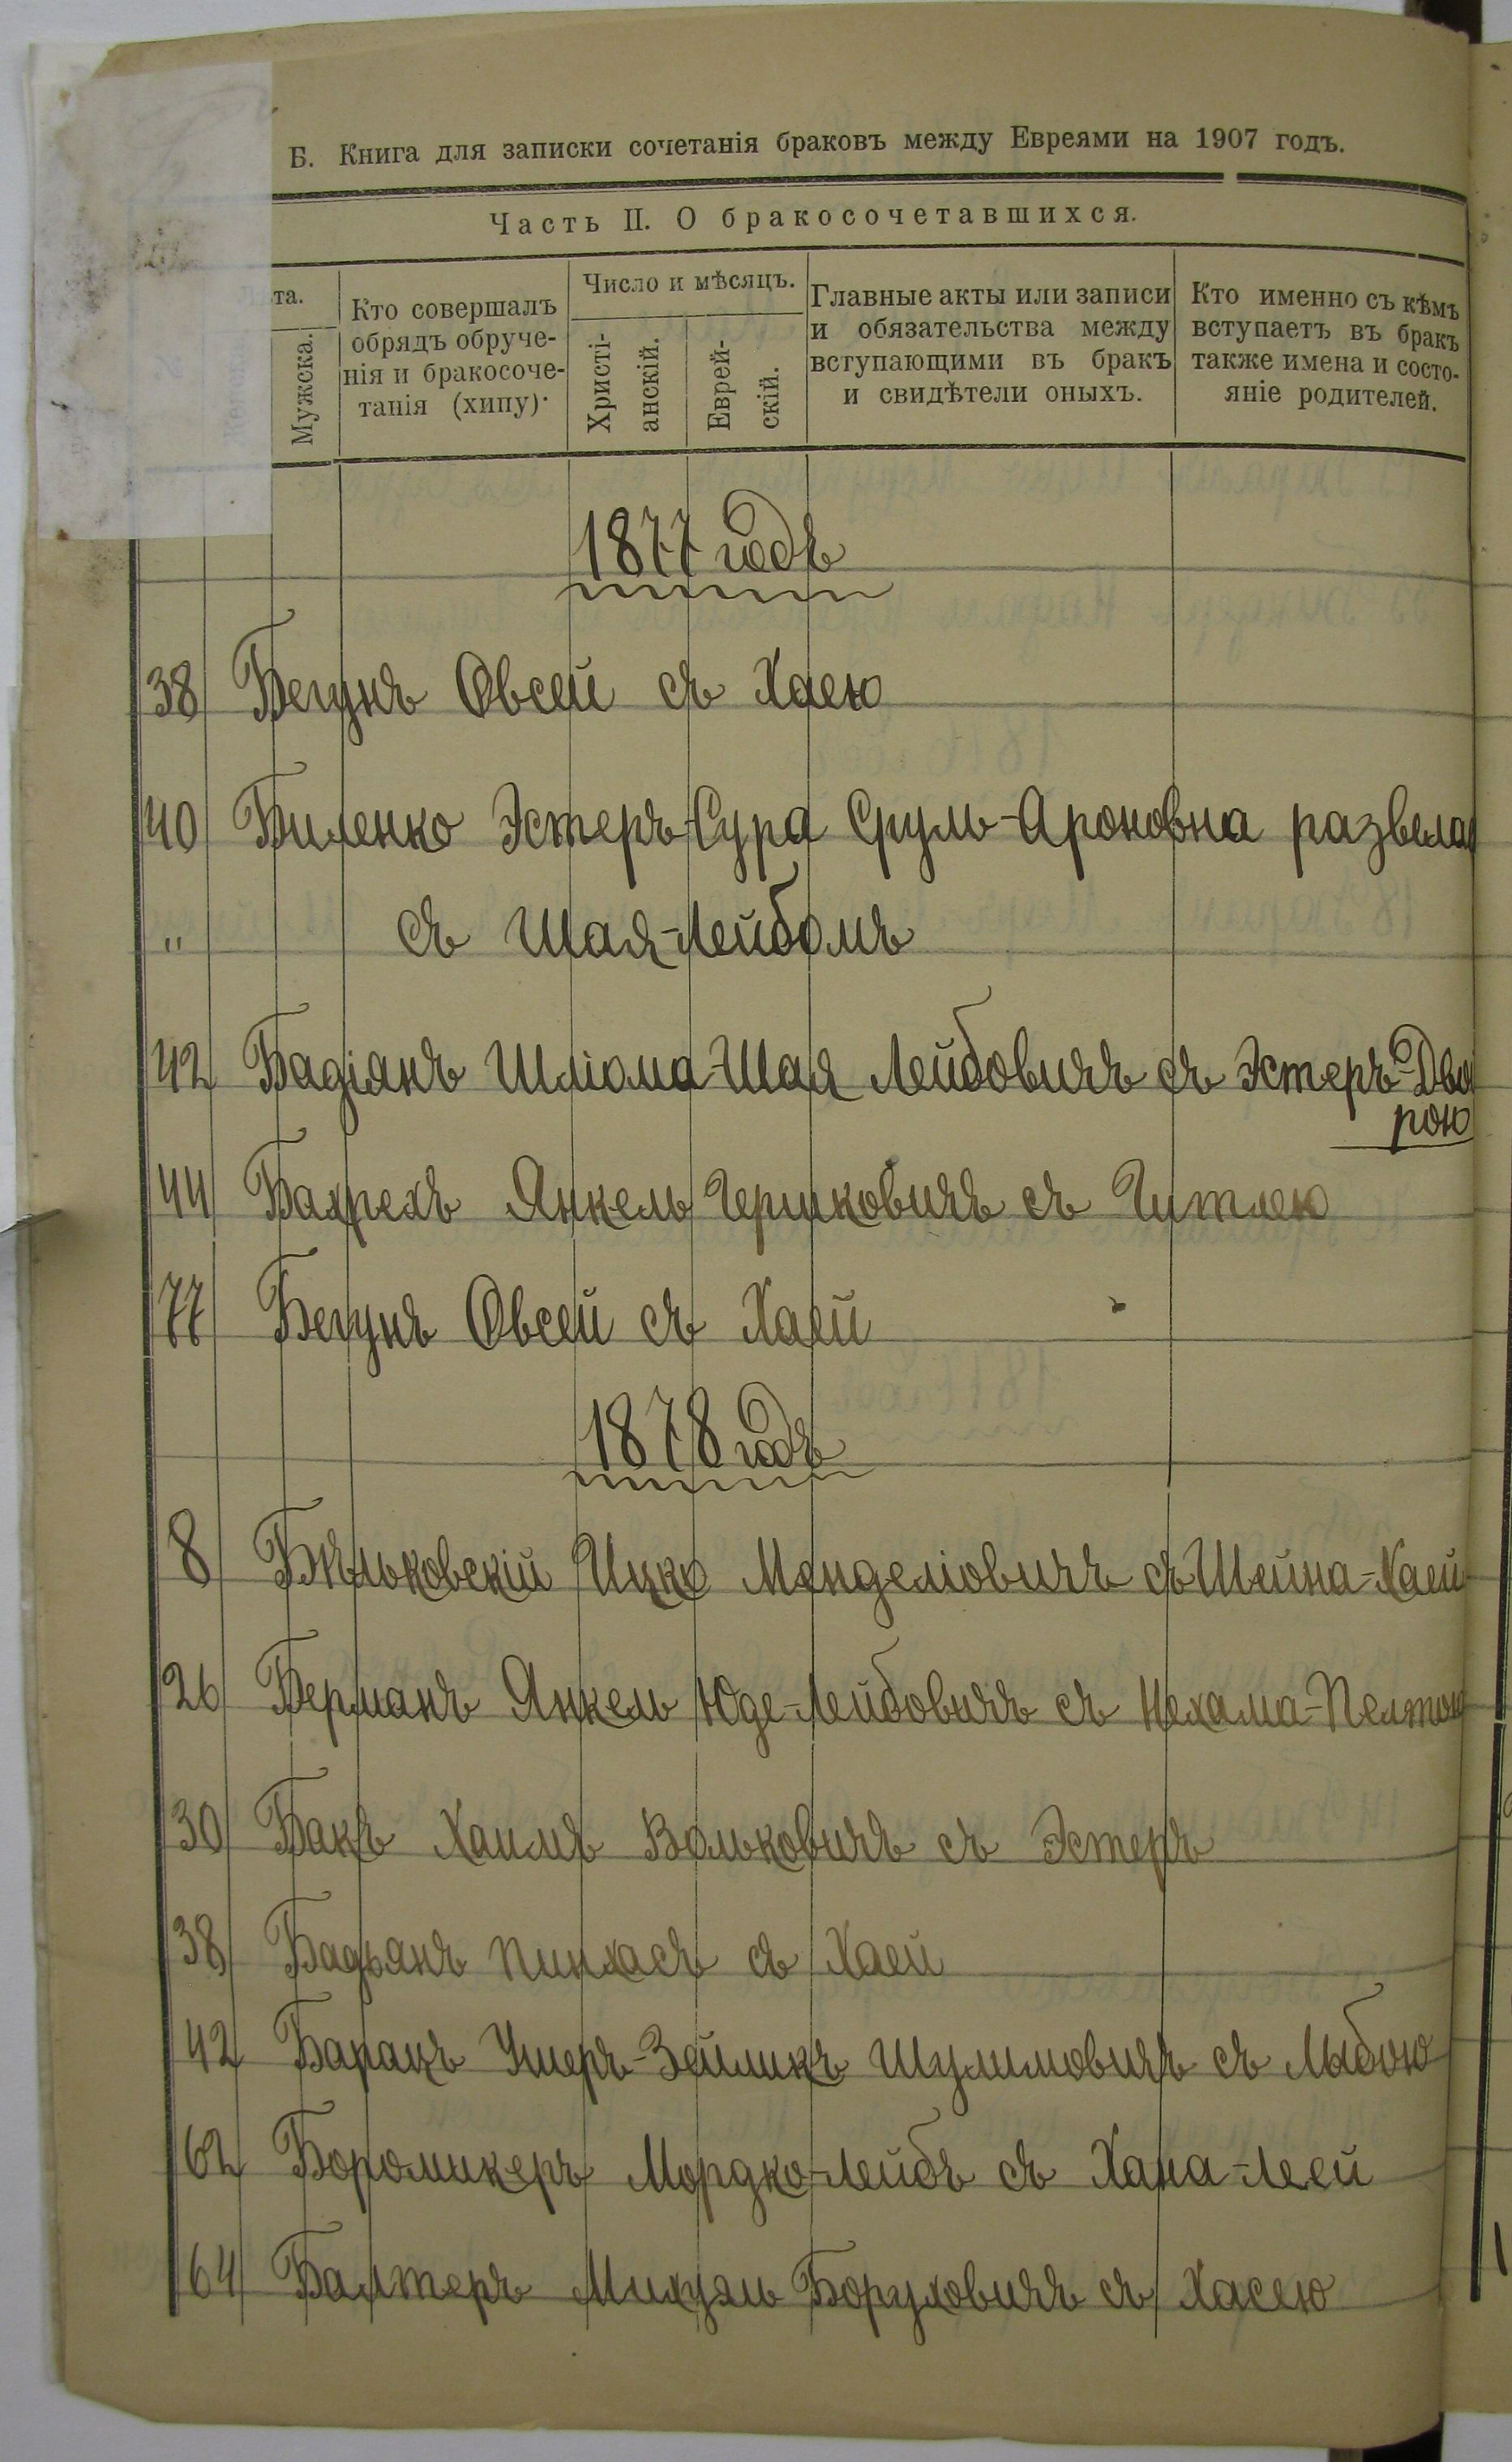 Б. Книга для записки сочетанія браковъ между Евреями на 1907 годъ.
Часть II. О бракосочетавшихся.
та.
Мужска.
Кто совершалъ
обрядъ обруче-
нія и бракосоче-
танія (хипу).
Число и мѣсяцъ.
Христі-
анскій.
Еврей-
скій.
Главные акты или записи
и обязательства между
вступающими въ бракъ
и свидѣтели оныхъ.
Кто именно съ кѣмъ
вступаетъ въ бракъ
также имена и состо-
яніе родителей.
1877 годъ
38 Бегунъ Овсей съ Хаею
40 Биленко Эстеръ-Сура Сруль-Ароновна развелась
" съ Шая-Лейбомъ
42 Бадіянъ Шліома-Шая Лейбовичъ съ Эстеръ-Дво
рою
44 Бахрехъ Янкель Гершковичъ съ Гитлею
77 Бегунъ Овсей съ Хаей
1878 годъ
8 Бѣльковскій Ицко Менделіовичъ съ Шейна-Хаей
26 Берманъ Янкель Юде-Лейбовичъ съ Нехама-Пелтою
30 Бакъ Хаимъ Вольковичъ съ Эстеръ
38 Бадьянъ Пинхасъ съ Хаей
42 Барацъ Ушеръ-Зейликъ Шулимовичъ съ Лыбою
62 Боромикеръ Мордко-Лейбъ съ Хана-Леей
64 Балтеръ Михуэль Боруховичъ съ Хасею